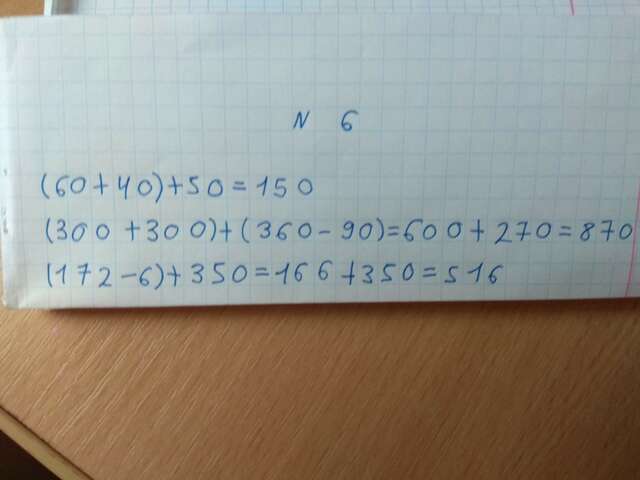 N 6
(60+40)+50=150
(300+300)+(360-90)=600+270=870
(172-6)+350=166+350=516